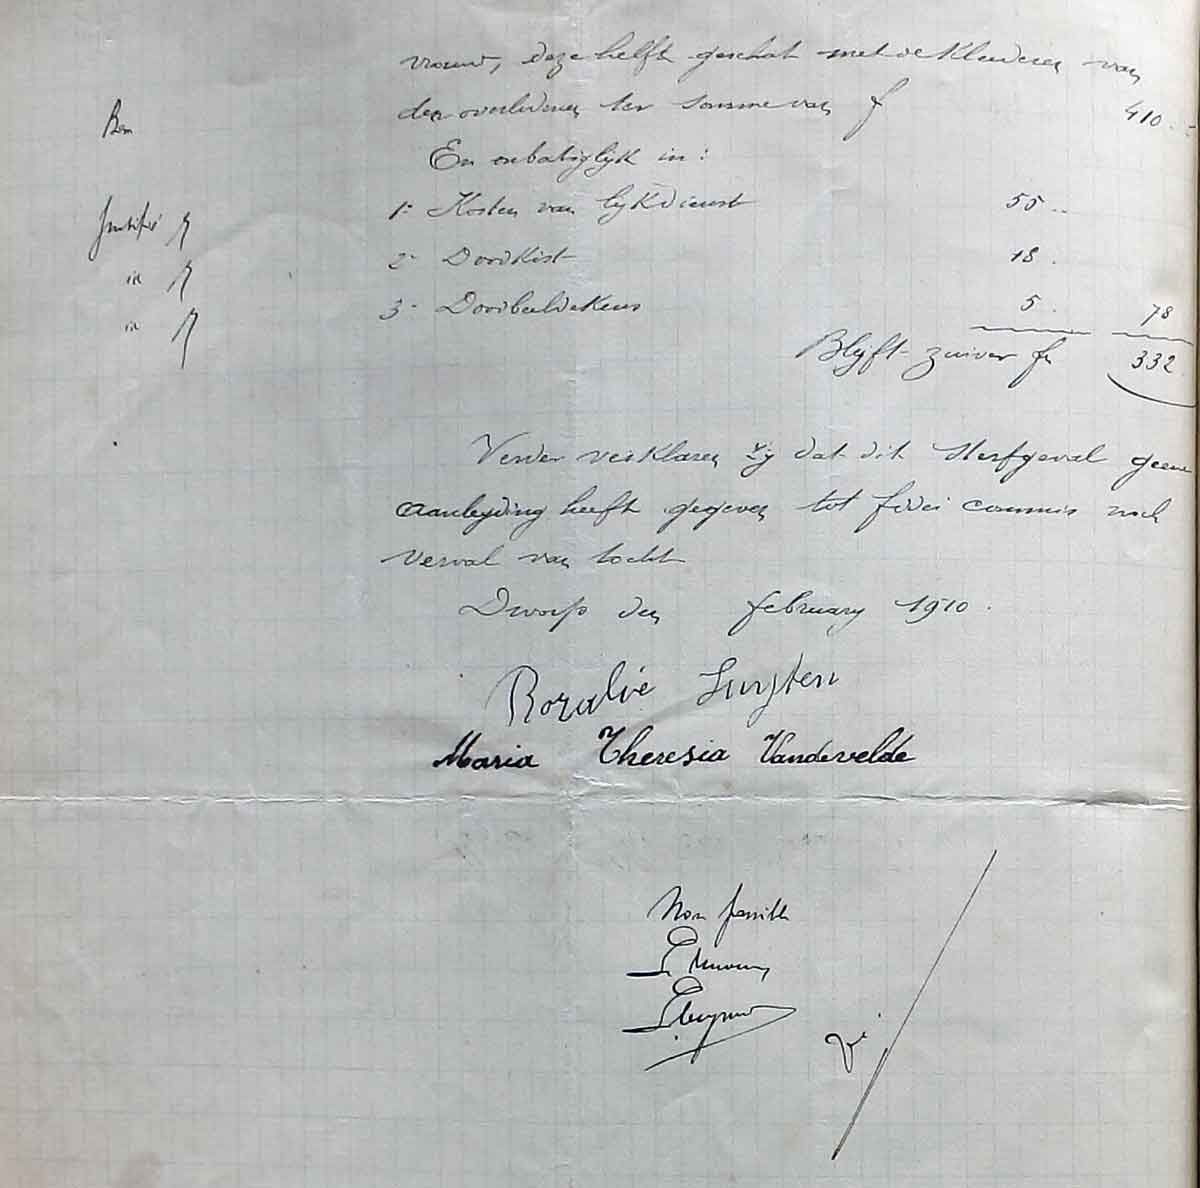 vrouw, deze helft geschat met de kleederen van
den overledenen ter somme van f 410 ..
En onbatiglijk in :
1- Kosten van lijkdienst 55 ..
Justifié
2- Doodkist 18 .
in
3- Doodbeeldekens 5 . 78
in
Blijft zuiver fr 332
Verder verklaren zij dat dit sterfgeval geene
aanleyding heeft gegeven tot fidei commis noch
verval van tocht
Dworp den february 1910 .
Rozalie Luyten
Maria Theresia Vandevelde
Non